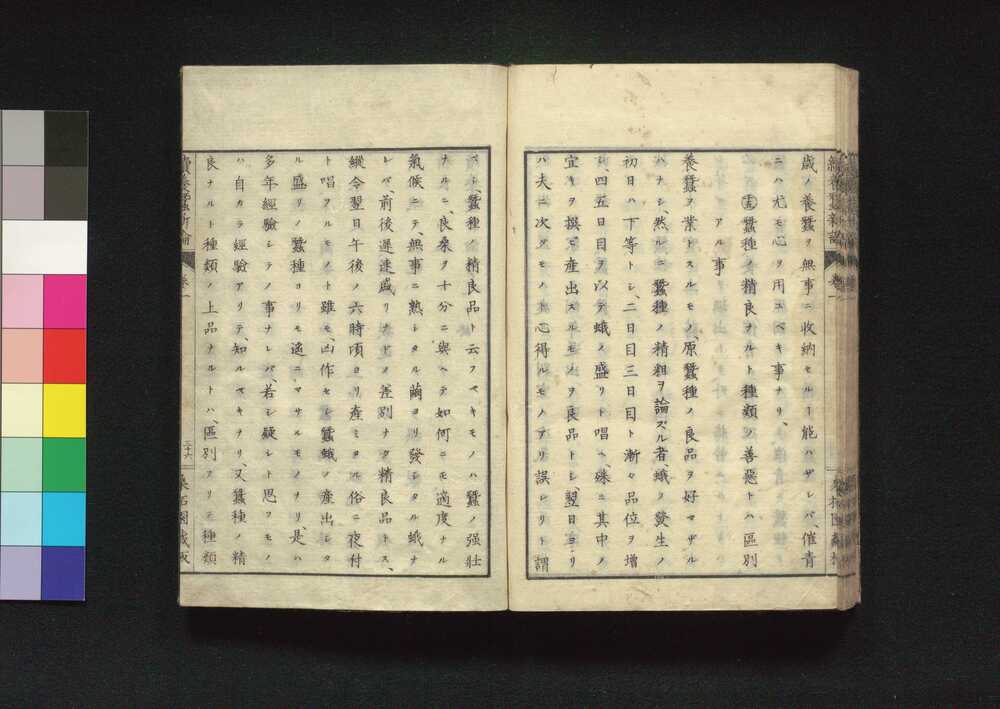 歳ノ養蠶ヲ無事ニ收納セルヿ能ハザレバ、催青
ニハ尤モ心ヲ用ユベキ事ナリ、
蠶種ノ精良ナルト種類ノ善惡トハ區別
アル事
養蠶ヲ業トスルモノ、原蠶種ノ良品ヲ好マザル
ハナシ、然ルニ蠶種ノ精粗ヲ論ズル者、蛾ノ發生ノ
初日ハ下等トシ、二日目三日目ト漸々品位ヲ增
シ、四五日目ヲ以テ蛾ノ盛リト唱ヘ、殊ニ其中ノ
宜キヲ撰モ産出スルモノヲ良品トシ、翌日ヨリ
ハ夫ニ次グモノト心得ルモノアリ誤レリト謂
ベシ、蠶種ノ精良品ト云フベキモノハ蠶ノ强壯
ナルニ、良桑ヲ十分ニ與ヘテ如何ニモ適度ナル
氣候ニテ、無事ニ熟シタル繭ヨリ發シタル蛾ナ
レバ、前後遲速盛リナドノ差別ナク精良品トス、
縱令翌日午後ノ六時頃ヨリ産ミヨル俗ニ夜付
ト唱フルモノト雖モ、凶作セシ蠶蛾ノ産出シタ
ル盛リノ蠶種ヨリモ遙ニマサルモノナリ、是ハ
多年經驗シテノ事ナレバ、若シ疑シト思フモノ
ハ自カラ經驗アリテ、知ルベキナリ、又蠶種ノ精
良ナルト種類ノ上品ナルトハ、區別アリモ種類
續養蠶新論
卷一
二十六